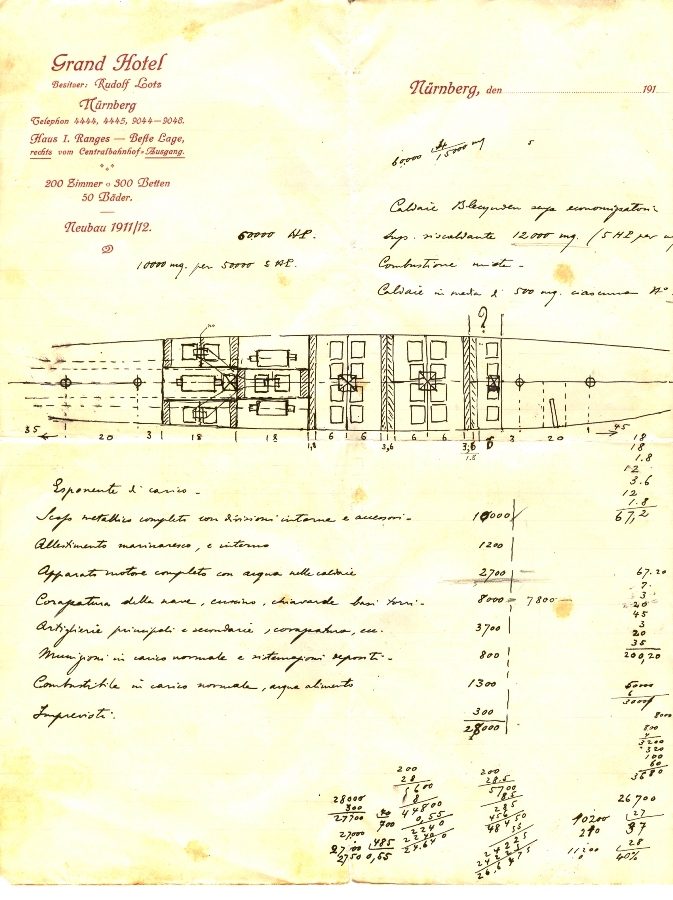 Grand Hotel
Besitzer: Rudolf Lotz
Nürnberg
Telephon 4444, 4445, 9044—9048.
Haus I. Ranges — Beste Lage,
rechts vom Centralbahnhof-Ausgang.
200 Zimmer o 300 Betten
50 Bäder.
Neubau 1911/12.
Nürnberg, den 191
60000 HP.
10000 mq. per 50000 HP.
60,000
15000 mq
Caldaie Blecynden
Sup. riscaldante 12000 mq. (5 HP per
Combustione mista -
Caldaie in meta di 500 mq. ciascuna No
?
35 20 3 18 18 1,8 6 6 3,6 6 6 3,6 6 3 20 45
1.8
Esponente di carico -
Scafo metallico completo con divisioni interne e accessori - 10000
Allestimento marinaresco, e interno 1200
Apparato motore completo con acqua nelle caldaie 2700
Corazzatura della nave, cuscino, chiavarde basi torri - 8000 = 7800 -
Artiglierie principali e secondarie, corazzatura, ecc. 3700
Munizioni in carico normale e sistemazioni depositi - 800
Combustibile in carico normale, acqua alimento 1300
Imprevisti. 300
28000
18
18
1.8
12
3.6
12
1.8
67,2
67.20
7.
3
20
45
3
20
35
200,20
5000
6
30000
800
800
4
3200
320
100
60
3680
28000
300
27700
27000
700
485
2750 0,55
200
28
5600
8
44800
0,55
2240
2240
24640
200
28.5
5700
8.5
285
456
48450
55
24225
24225
26.6475
26700
27
10200
210
37
11200
28
0
40%